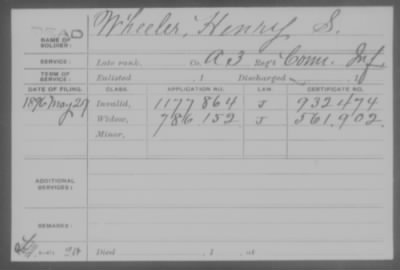 DEAD
NAME OF SOLDIER: Wheeler, Henry S.
SERVICE: Late rank, Co. A 3 Reg't Conn. Inf.
TERM OF SERVICE: Enlisted , 1 Discharged , 1
DATE OF FILING. CLASS. APPLICATION NO. LAW. CERTIFICATE NO.
1896 May 29 Invalid, 1177.864 J 932.474
Widow, 786.152 J 561.902
Minor,
ADDITIONAL SERVICES:
REMARKS:
Died , 1 , at